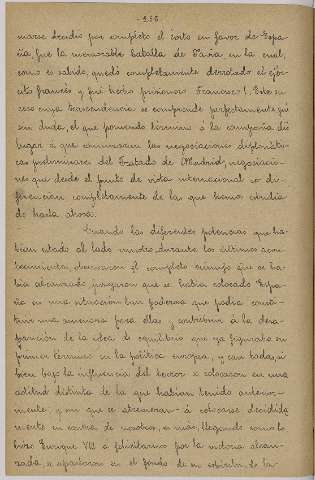 - 236 -
marse decidió por completo el éxito en favor de Espa-
ña, fue la memorable batalla de Pavía en la cual,
como es sabido, quedó completamente derrotado el ejér-
cito francés y fué hecho prisionero Francisco I. Este su-
ceso cuya trascendencia se comprende perfectamente, fué
sin duda, el que poniendo término á la campaña dió
lugar á que comenzasen las negociaciones diplomáti-
cas preliminares del Tratado de Madrid, negociacio-
nes que desde el punto de vista internacional se di-
ferencian completamente de las que hemos estudia-
do hasta ahora.
Cuando las diferentes potencias que ha-
bían estado al lado nuestro durante los últimos acon-
tecimientos, observaron el completo triunfo que se ha-
bía alcanzado juzgaron que se había colocado Espa-
ña en una situación tan poderosa que podía consti-
tuir una amenaza para ellas, y contribuir á la desa-
parición de la idea de equilibrio que ya figuraba en
primer término en la política europea, y casi todas, si
bien bajo la influencia del terror se colocaron en una
actitud distinta de la que habían tenido anterior-
mente, y sin que se atreviesen á colocarse decidida-
mente en contra de nosotros, es más, llegando como lo
hizo Enrique VIII á felicitarnos por la victoria alcan-
zada, se apartaron en el fondo de su espíritu de la